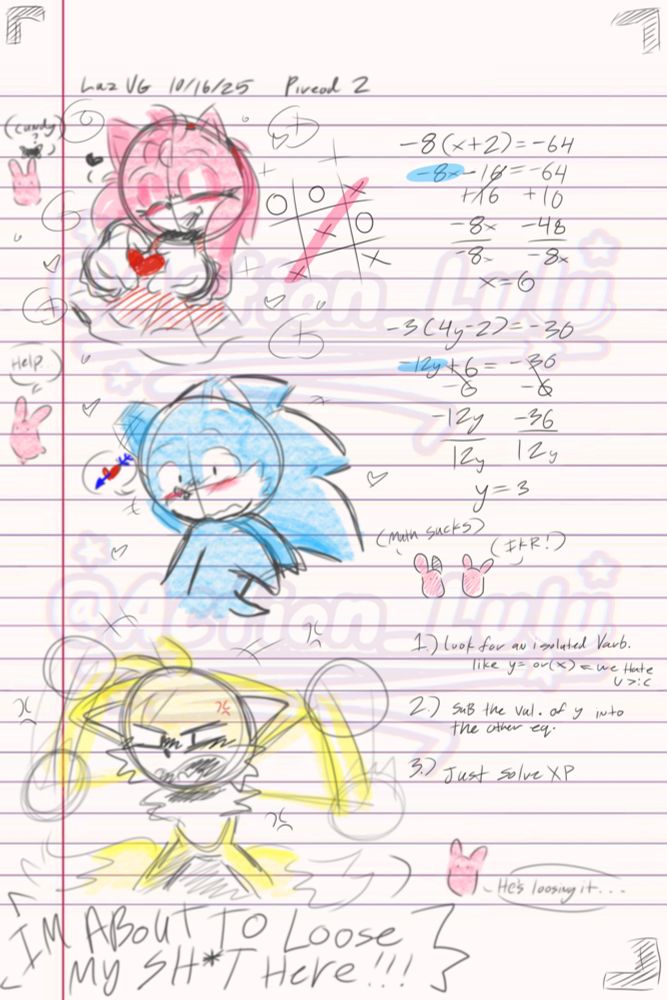 Laz VG 10/16/25 Pireod 2
(candy?)
-8(x+2)=-64
-8x-16=-64
+16 +10
-8x -48
-8x -8x
x=6
Help...
-3(4y-2)=-30
-12y+6=-30
-6 -6
-12y -36
12y 12y
y=3
(Math sucks)
(IKR!)
@Action_Lulu
@Action_Lulu
1.) Look for an isolated Varb.
like y= or(x) = we Hate
U >:c
2.) SuB the Val. of y into
the other eq.
3.) Just solve XP
He's loosing it...
I'M ABOUT TO LOOSE
MY SH*T HERE!!!